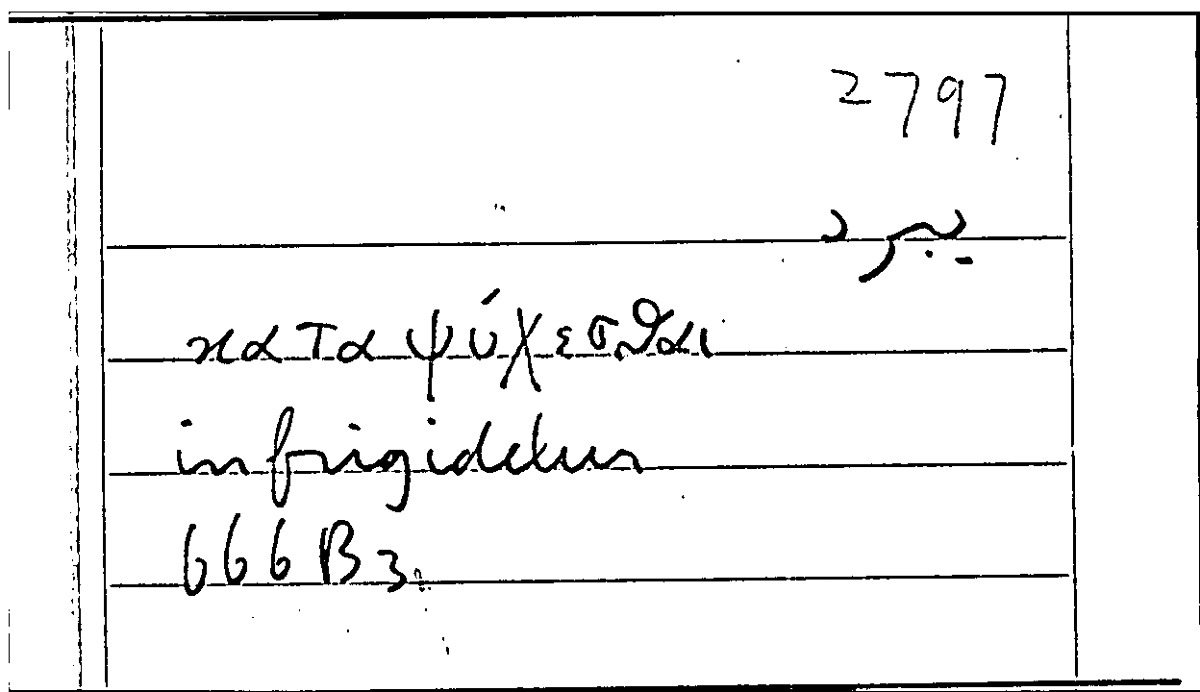 2797
يبرد
καταψύχεσθαι
infrigidetur
666 B 3.